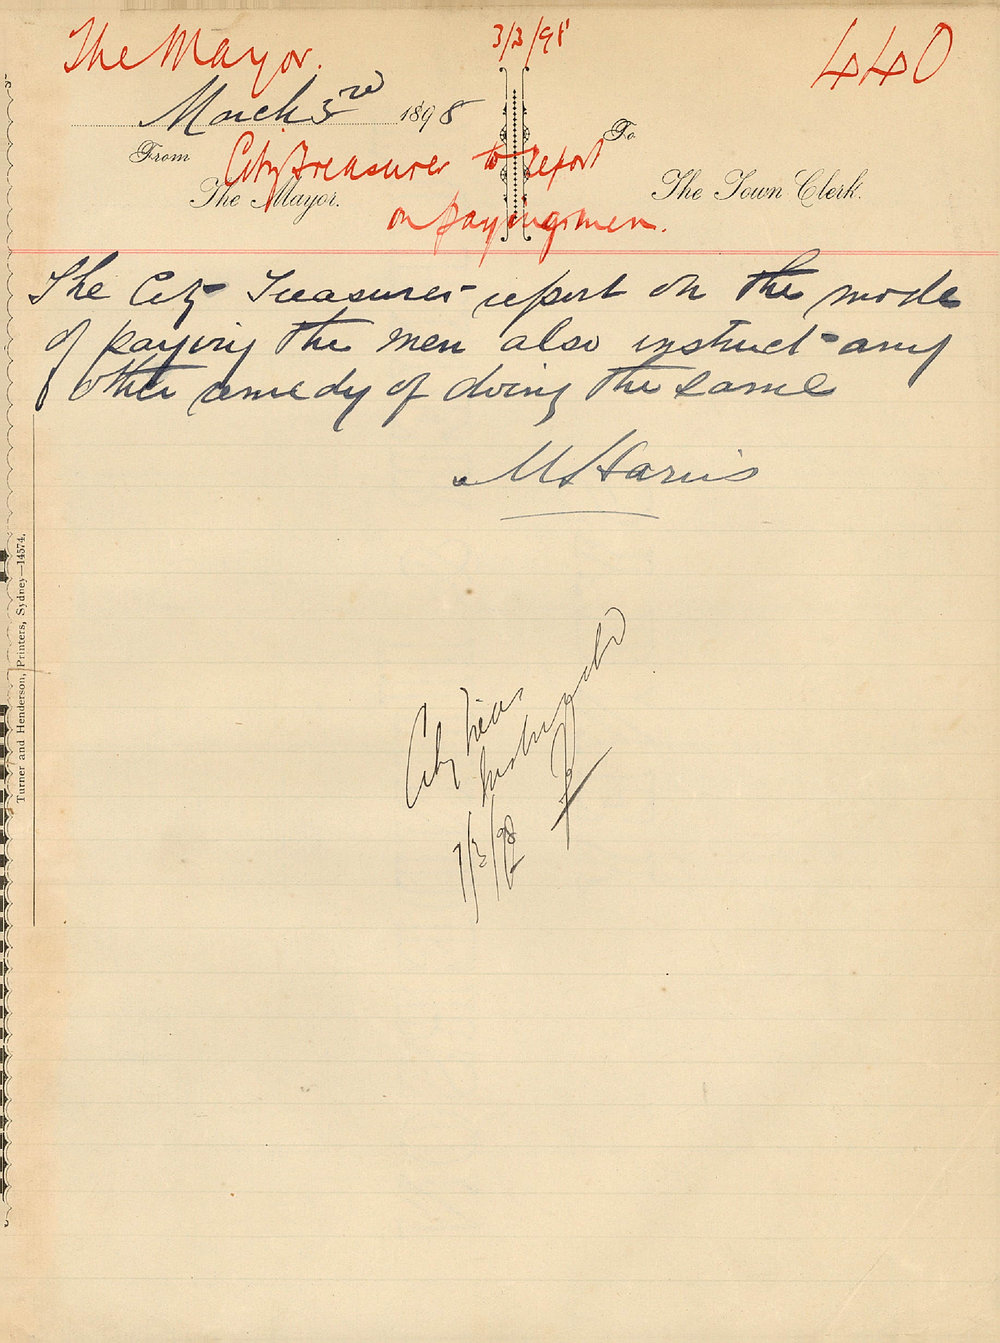 The Mayor.
3/3/98
440
March 3rd 1898
From
To
City Treasurer to report
The Mayor.
The Town Clerk.
on paying men.
The City Treasurer report on the mode
of paying the men also instruct any
other remedy of doing the same
M Harris
City Treas
Instructed
7/3/98
Turner and Henderson, Printers, Sydney—14574.